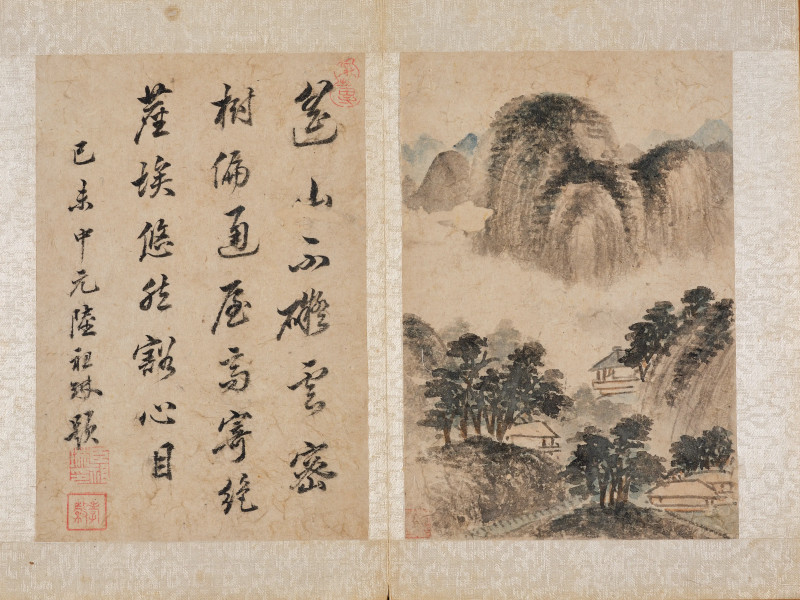 遥山不礙雲密
樹偏通屋高寄絶
塵埃悠然豁心目
己未中元陸祖琳題